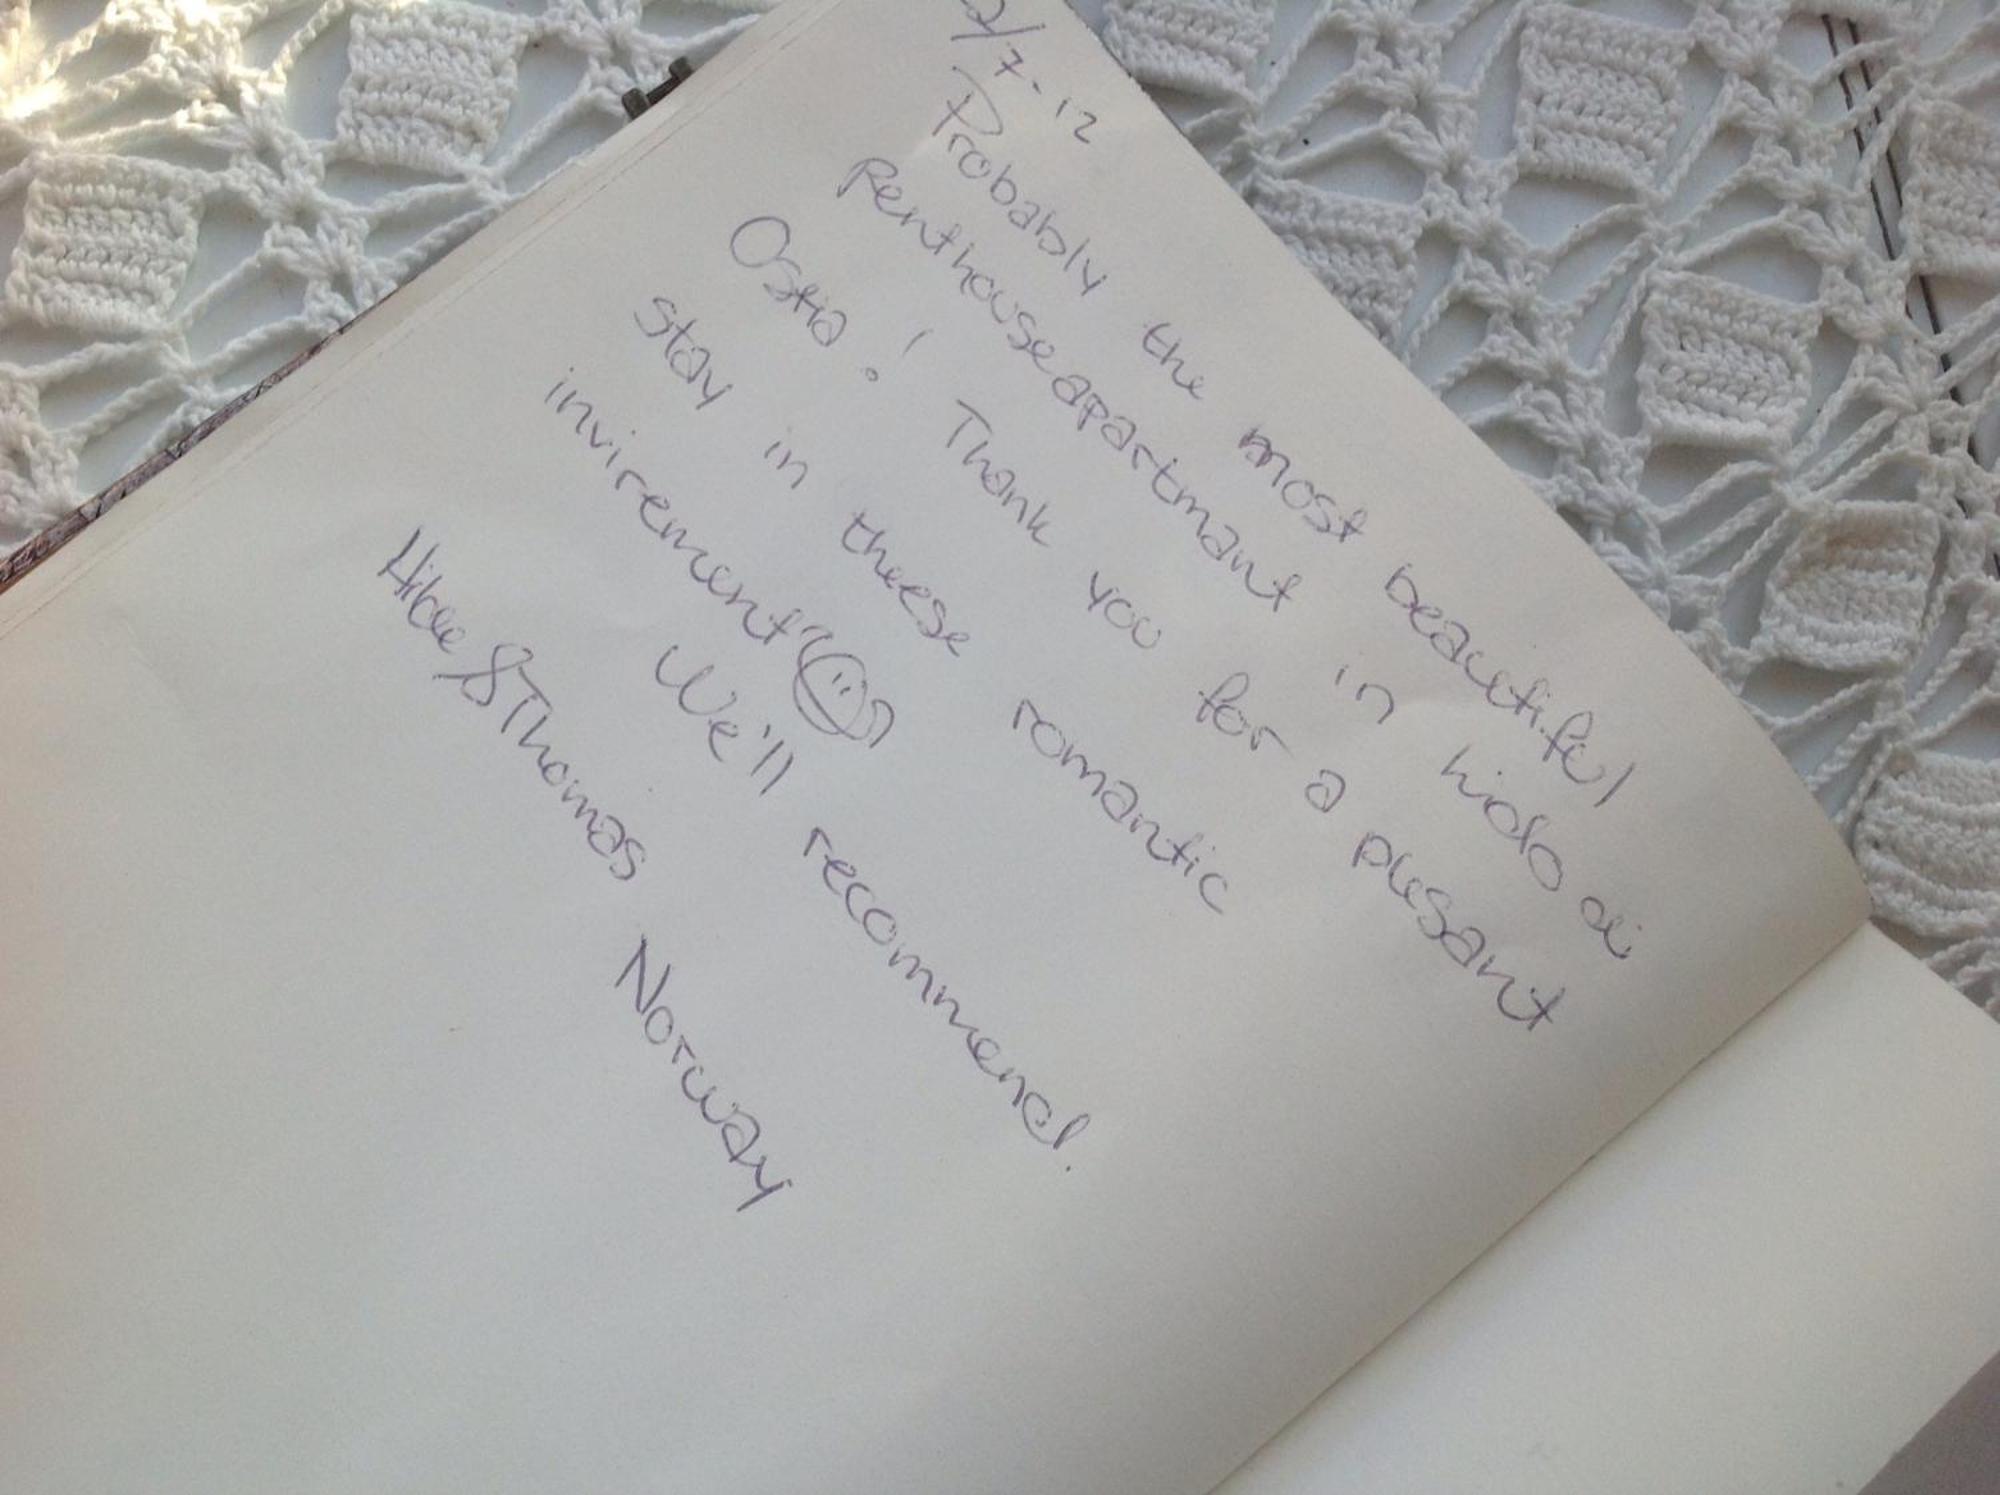 2/7-12
Probably the most beautiful
Penthouseapartmant in hido di
Ostia! Thank you for a plesant
stay in theese romantic
invirement
We'll recommend.
& Thomas Norway